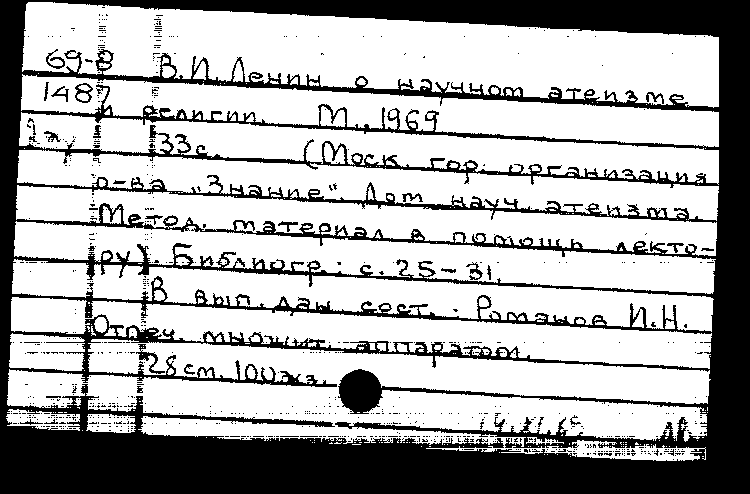 69-8 В.И. Ленин о научном атеизме
1487 и религии. М., 1969
2эк 33с. (Моск. гор. организация
о-ва „Знание". Дом науч. атеизма.
Метод. материал в помощь лекто-
ру). Библиогр.: с. 25-31.
В вып. дан. сост.: Романов И.Н.
Отпеч. множит. аппаратом.
28см. 100экз.
14.XI.69